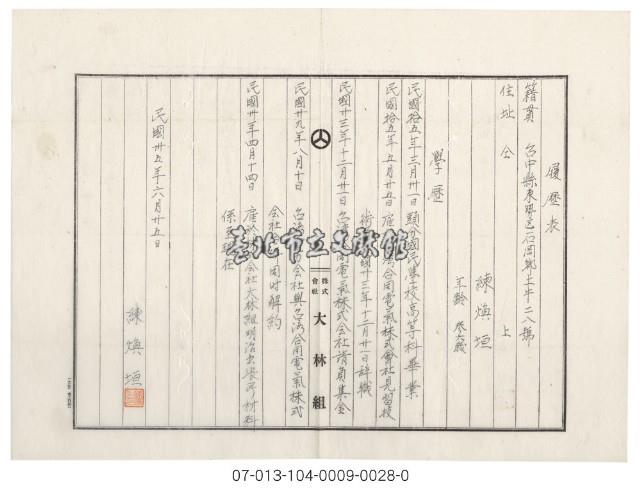 履歷表
籍貫 台中縣東勢區石岡鄉土牛二八號
住址 仝 上
練煥垣
年齡 參六歲
學歷
民國拾五年三月卅一日 頭分國民學校高等科畢業
民國拾五年五月廿五日 合同電氣株式會社見習技
術 國廿三年十二月廿一日辭職
民國廿三年十二月廿一日 台灣 電氣株式会社請負集金
民國廿九年八月十日 台灣 会社與台湾合同電氣株式
会社 同时解約
民國卅年四月十四日 会社大林組明治出張所材料
係 現在
民國卅五年六月廿五日
練煥垣
株式會社 大林組
臺北市立文獻館
07-013-104-0009-0028-0